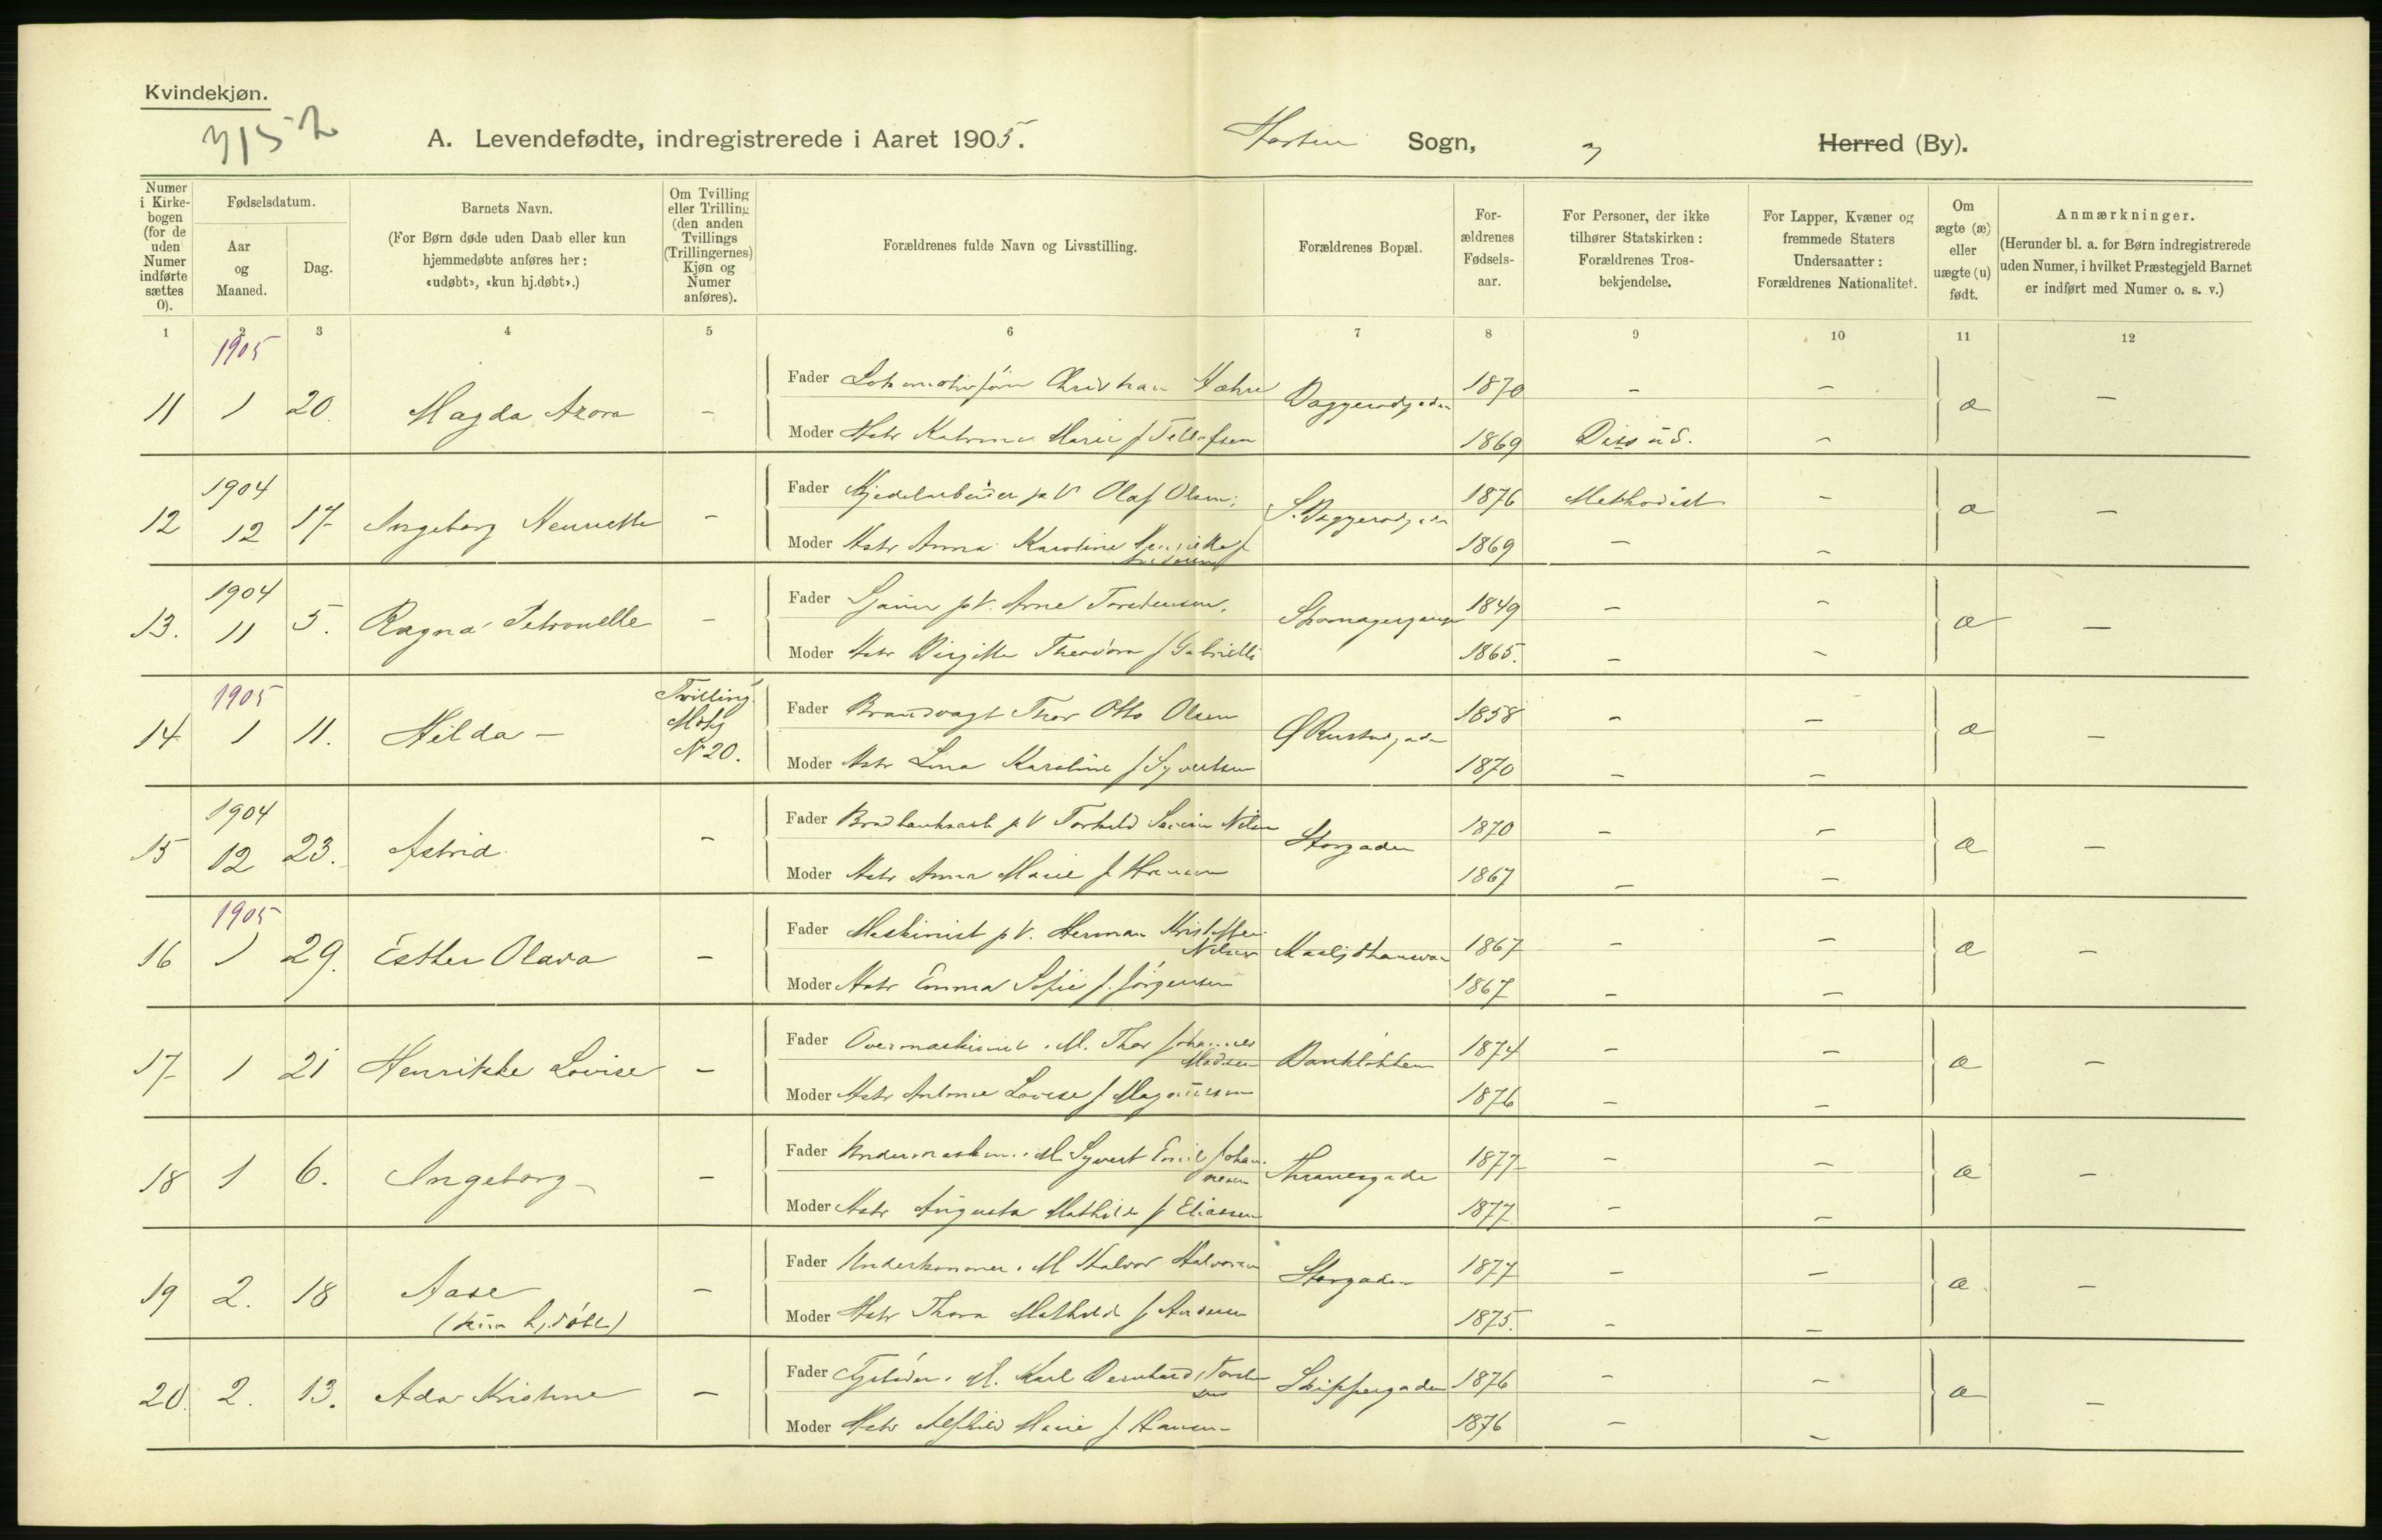 Kvindekjøn.
7152
A. Levendefødte, indregistrerede i Aaret 1905.
Horten Sogn, Herred (By).
Numer i Kirkebogen (for de uden Numer indførte sættes 0).
Fødselsdatum.
Aar og Maaned.
Dag.
Barnets Navn.
(For Børn døde uden Daab eller kun hjemmedøbte anføres her: «udøbt», «kun hj.døbt».)
Om Tvilling eller Trilling (den anden Tvillings (Trillingernes) Kjøn og Numer anføres).
Forældrenes fulde Navn og Livsstilling.
Forældrenes Bopæl.
Forældrenes Fødselsaar.
For Personer, der ikke tilhører Statskirken: Forældrenes Trosbekjendelse.
For Lapper, Kvæner og fremmede Staters Undersaatter: Forældrenes Nationalitet.
Om ægte (æ) eller uægte (u) født.
Anmærkninger.
(Herunder bl. a. for Børn indregistrerede uden Numer, i hvilket Præstegjeld Barnet er indført med Numer o. s. v.)
1 2 3 4 5 6 7 8 9 10 11 12
1905
11 1 20. Magda Azora - Fader Christian 1870 - - æ -
Moder Hstr Marie f Tellefsen 1869 Diss -
1904
12 12 17 Ingeborg Henriette - Fader Kjedelarbeider p V Olaf Olsen 1876 Methodist - æ -
Moder Hstr Anna Karoline f 1869 - -
1904
13. 11 5. Ragna Petronelle - Fader p V. Arne Torstensen. 1849 - - æ -
Moder Hstr Birgitte Theodora f Gabrielli 1865. - -
1905
14 1 11. Hilda - Tvilling Mdkj N 20. Fader Brandvagt Thor Otto Olsen Ø Rustadgaden 1858 - - æ -
Moder Hstr Lina Karoline f Syvertsen 1870 - -
1904
15 12 23. Astrid - Fader p V Torkild Severin Nilsen Storgaden 1870 - - æ -
Moder Hstr Anna Marie f Hansen 1867 - -
1905
16 1 29. Esther Olava - Fader Maskinist p V. Herman Kristoffer Nilsen 1867 - - æ -
Moder Hstr Emma Sofie f. Jörgensen 1867 - -
17 1 21 Henrikke Lovise - Fader Overmaskinist . M. Thor Johannes Madsen 1874 - - æ -
Moder Hstr Antonie Lovise f Magnussen 1876 - -
18 1 6. Ingeborg - Fader Undermaskin. . M. Syvert Emil Johannesen Thranesgade 1877 - - æ -
Moder Hstr Augusta Mathilde f Eliassen 1877 - -
19 2. 18 Aase - Fader Underkanoner . M Halvor Halvorsen Storgaden 1877 - - æ -
(kun hj.døbt)
Moder Hstr Thora Mathilde f Andersen 1875. - -
20. 2. 13. Ada Kristine - Fader . M. Karl Bernhard Skippergaden 1876 - - æ -
Moder Hstr Alfhild Marie f Hansen 1876 - -